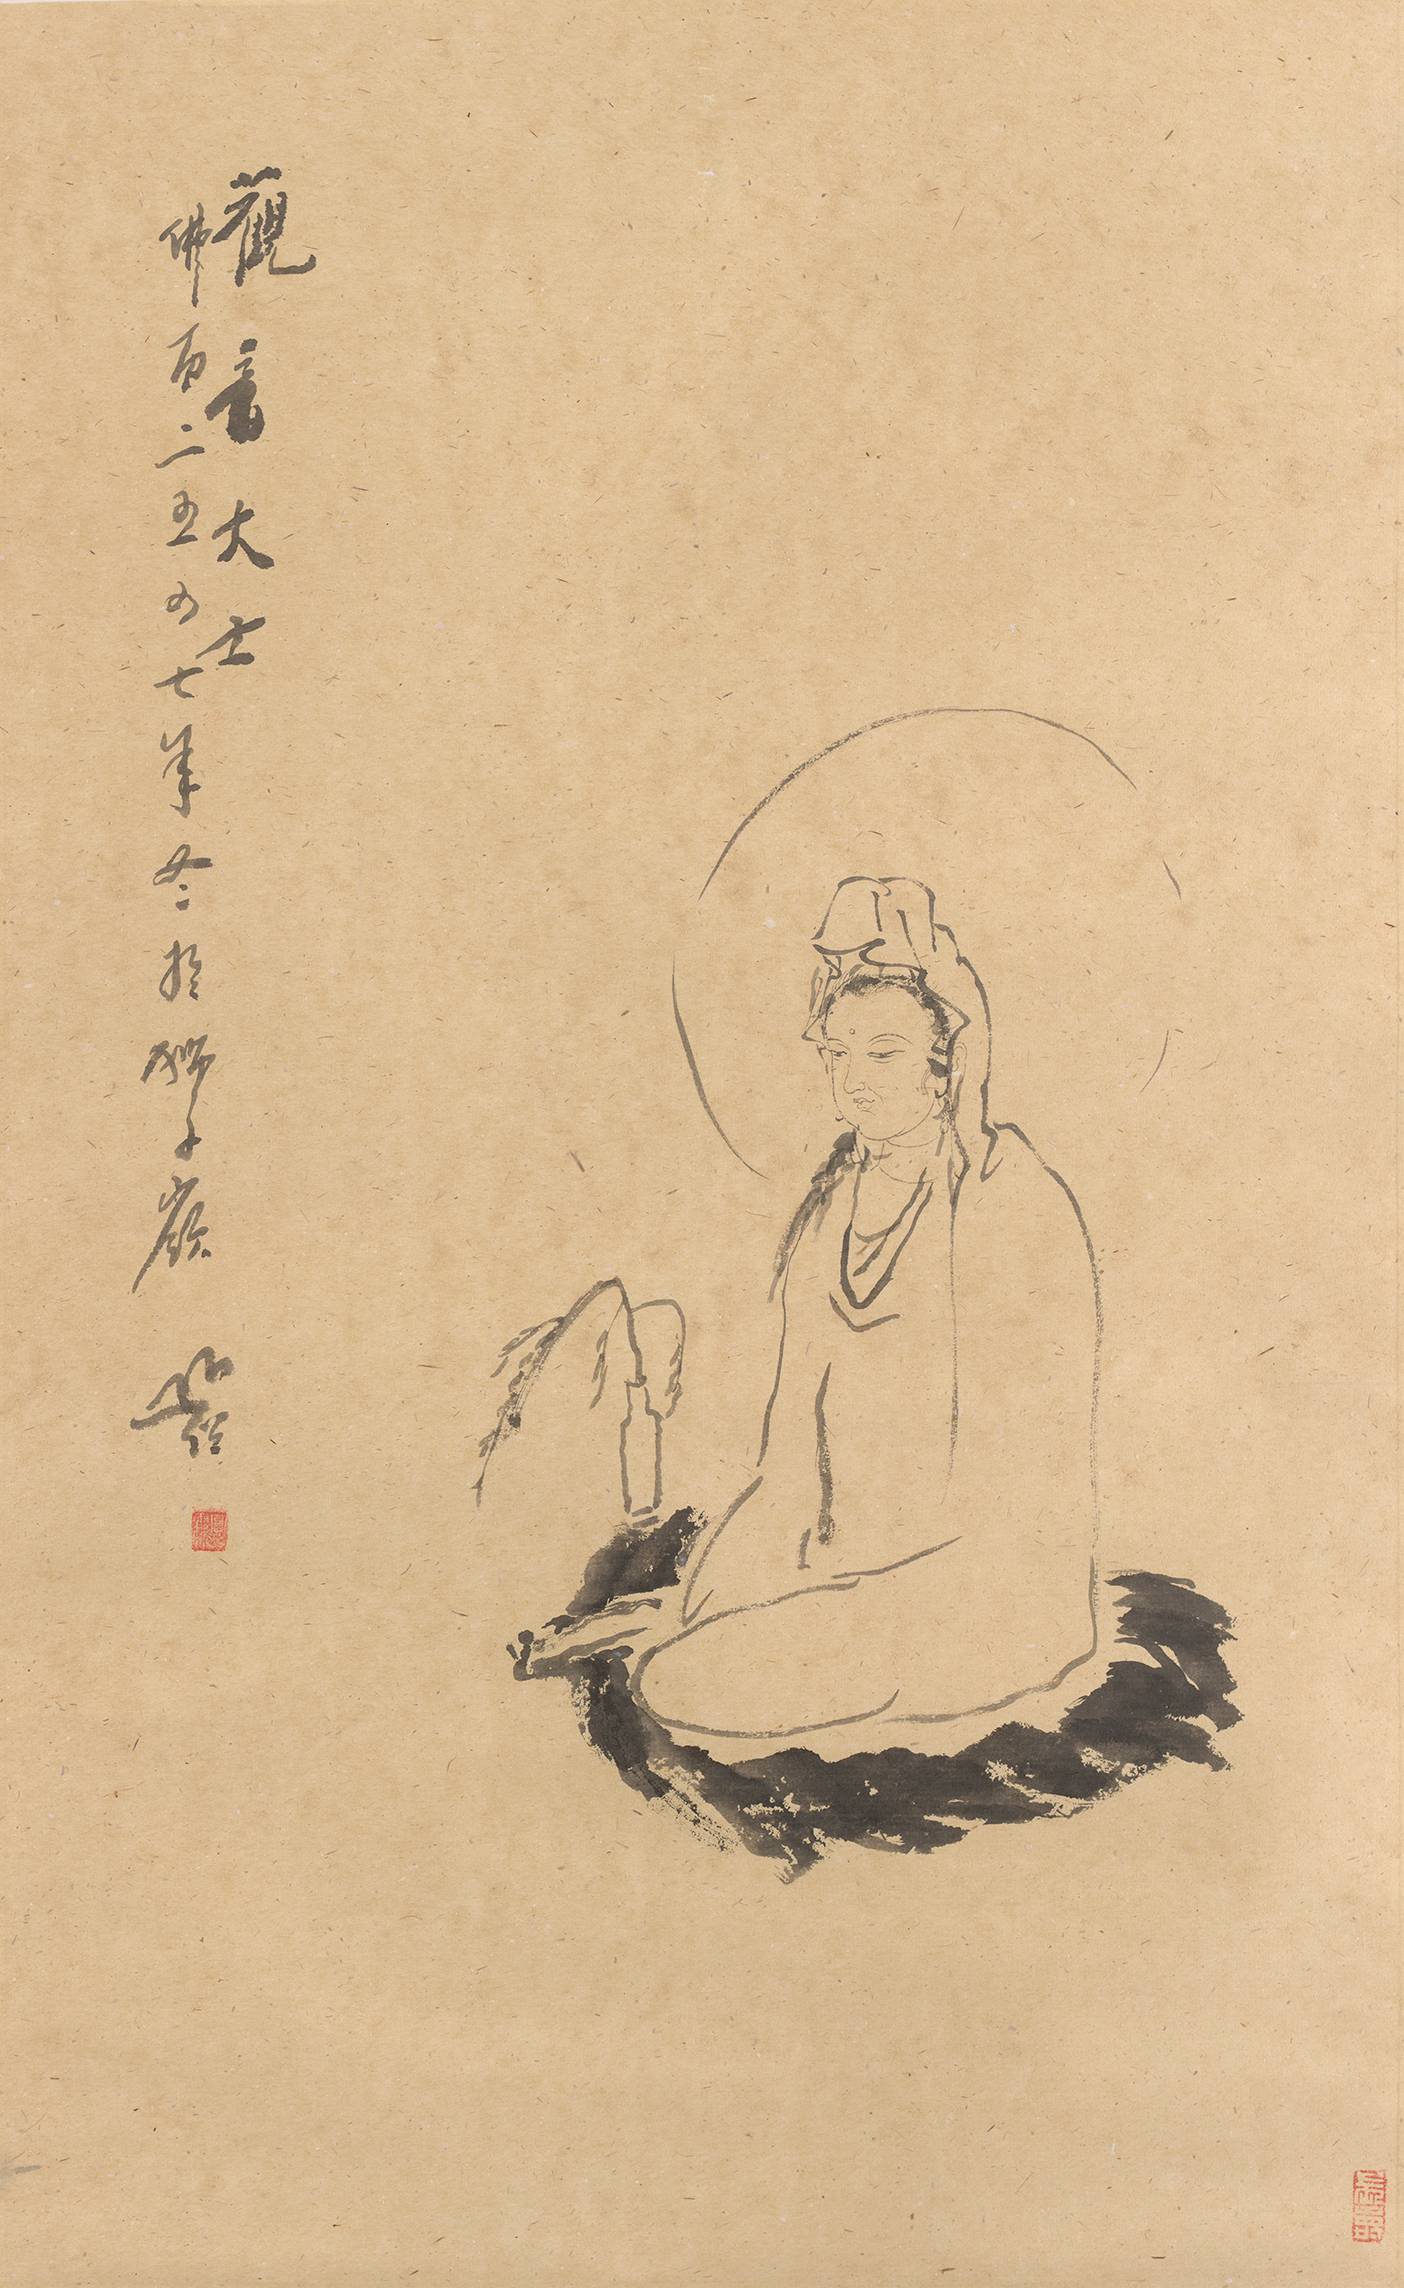 觀音大士
佛曆二五五七年冬於獅子嶺